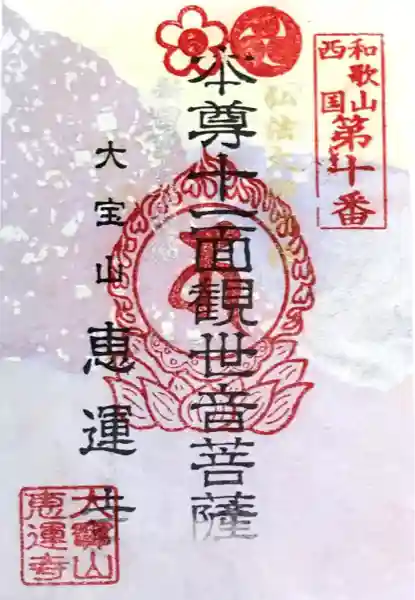 和歌山
西国
第十番
本尊十一面観世音菩薩
大宝山恵運寺
大寶山
恵運寺